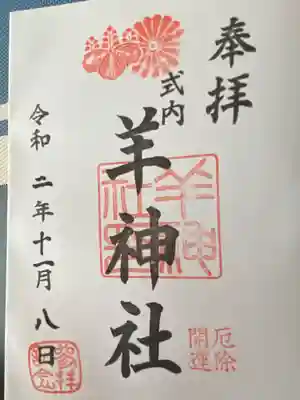 奉拝
式内
羊神社
羊神社
厄除
開運
令和二年十一月八日
参拝
記念